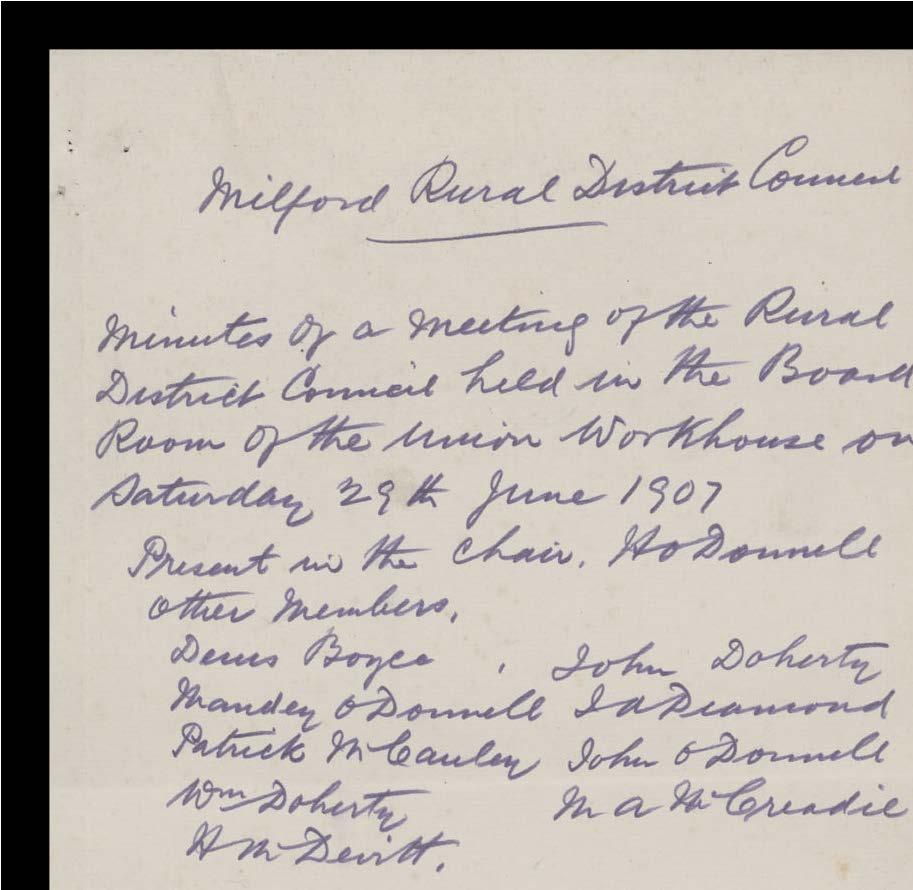 Milford Rural District Council
Minutes of a Meeting of the Rural
District Council held in the Board
Room of the Union Workhouse on
Saturday 29th June 1907
Present in the Chair. H O Donnell
Other Members.
Denis Boyce , John Doherty
Mandey O Donnell J A Deamond
Patrick McCauley John O Donnell
Wm Doherty M A McCreadie
H McDevitt.